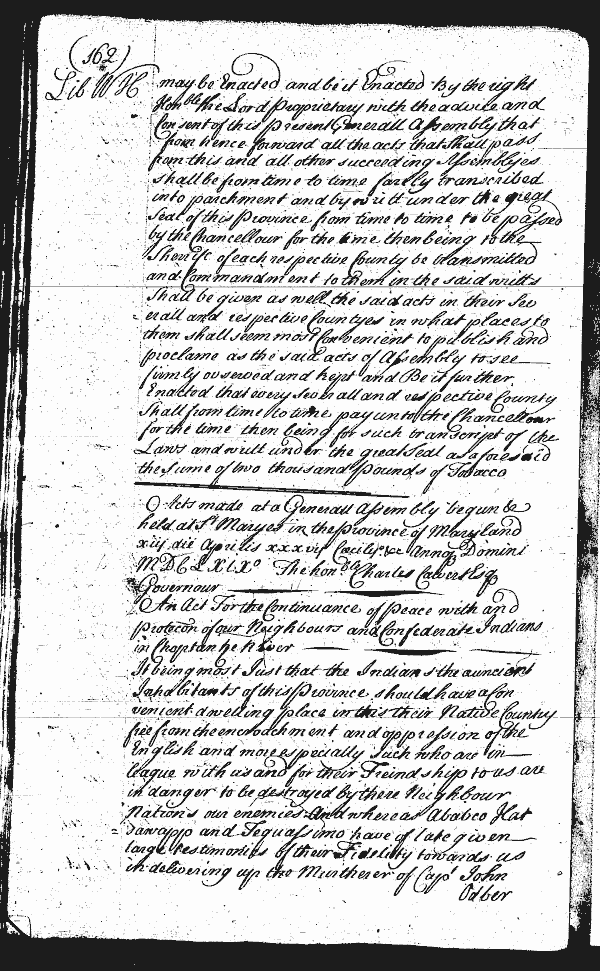 (162)
Lib W H
may be Enacted and be it Enacted By the right
Honble the Lord Proprietary with the advice and
Consent of this present Generall Assembly that
from hence forward all the acts that shall pass
from this and all other succeeding Assemblyes
shall be from time to time fairly transcribed
into parchment and by writt under the great
Seal of this Province from time to time to be passed
by the Chancellour for the time then being to the
Sheriff of each respective County be transmitted
and Commandment to them in the said writts
Shall be given as well the said acts in their Sev
erall and respective Countyes in what places to
them shall seem most Convenient to publish and
proclame as the said acts of Assembly to see
firmly overved and kept and Be it further
Enacted that every severall and respective County
Shall from time to time pay unto the Chancellour
for the time then being for such transcript of the
Laws and writt under the great Seal as aforesaid
the sume of two thousand Pounds of Tobacco
Acts made at a Generall Assembly begun &
held at St Maryes in the Province of Maryland
xiij die Aprilis xxxvij Cæcilij &c Annoq Domini
MDCLXIXo The honble Charles Calvert Esq
Governour
An Act For the Continuance of peace with and
protecon of our Neighbours and Confederate Indians
in Choptank River
It being most Just that the Indians the auncient
Inhabitants of this Province should have a Con
venient dwelling place in this their Native Country
free from the encroachment and oppression of the
English and more especially such who are in
league with us and for their Friendship to us are
in danger to be destroyed by there Neighbour
Nation's our enemies And whereas Ababco Hat
= sawapp and Tequassimo have of late given
large testimonies of their Fidelity towards us
in delivering up the Murtherer of Capt John
Odber